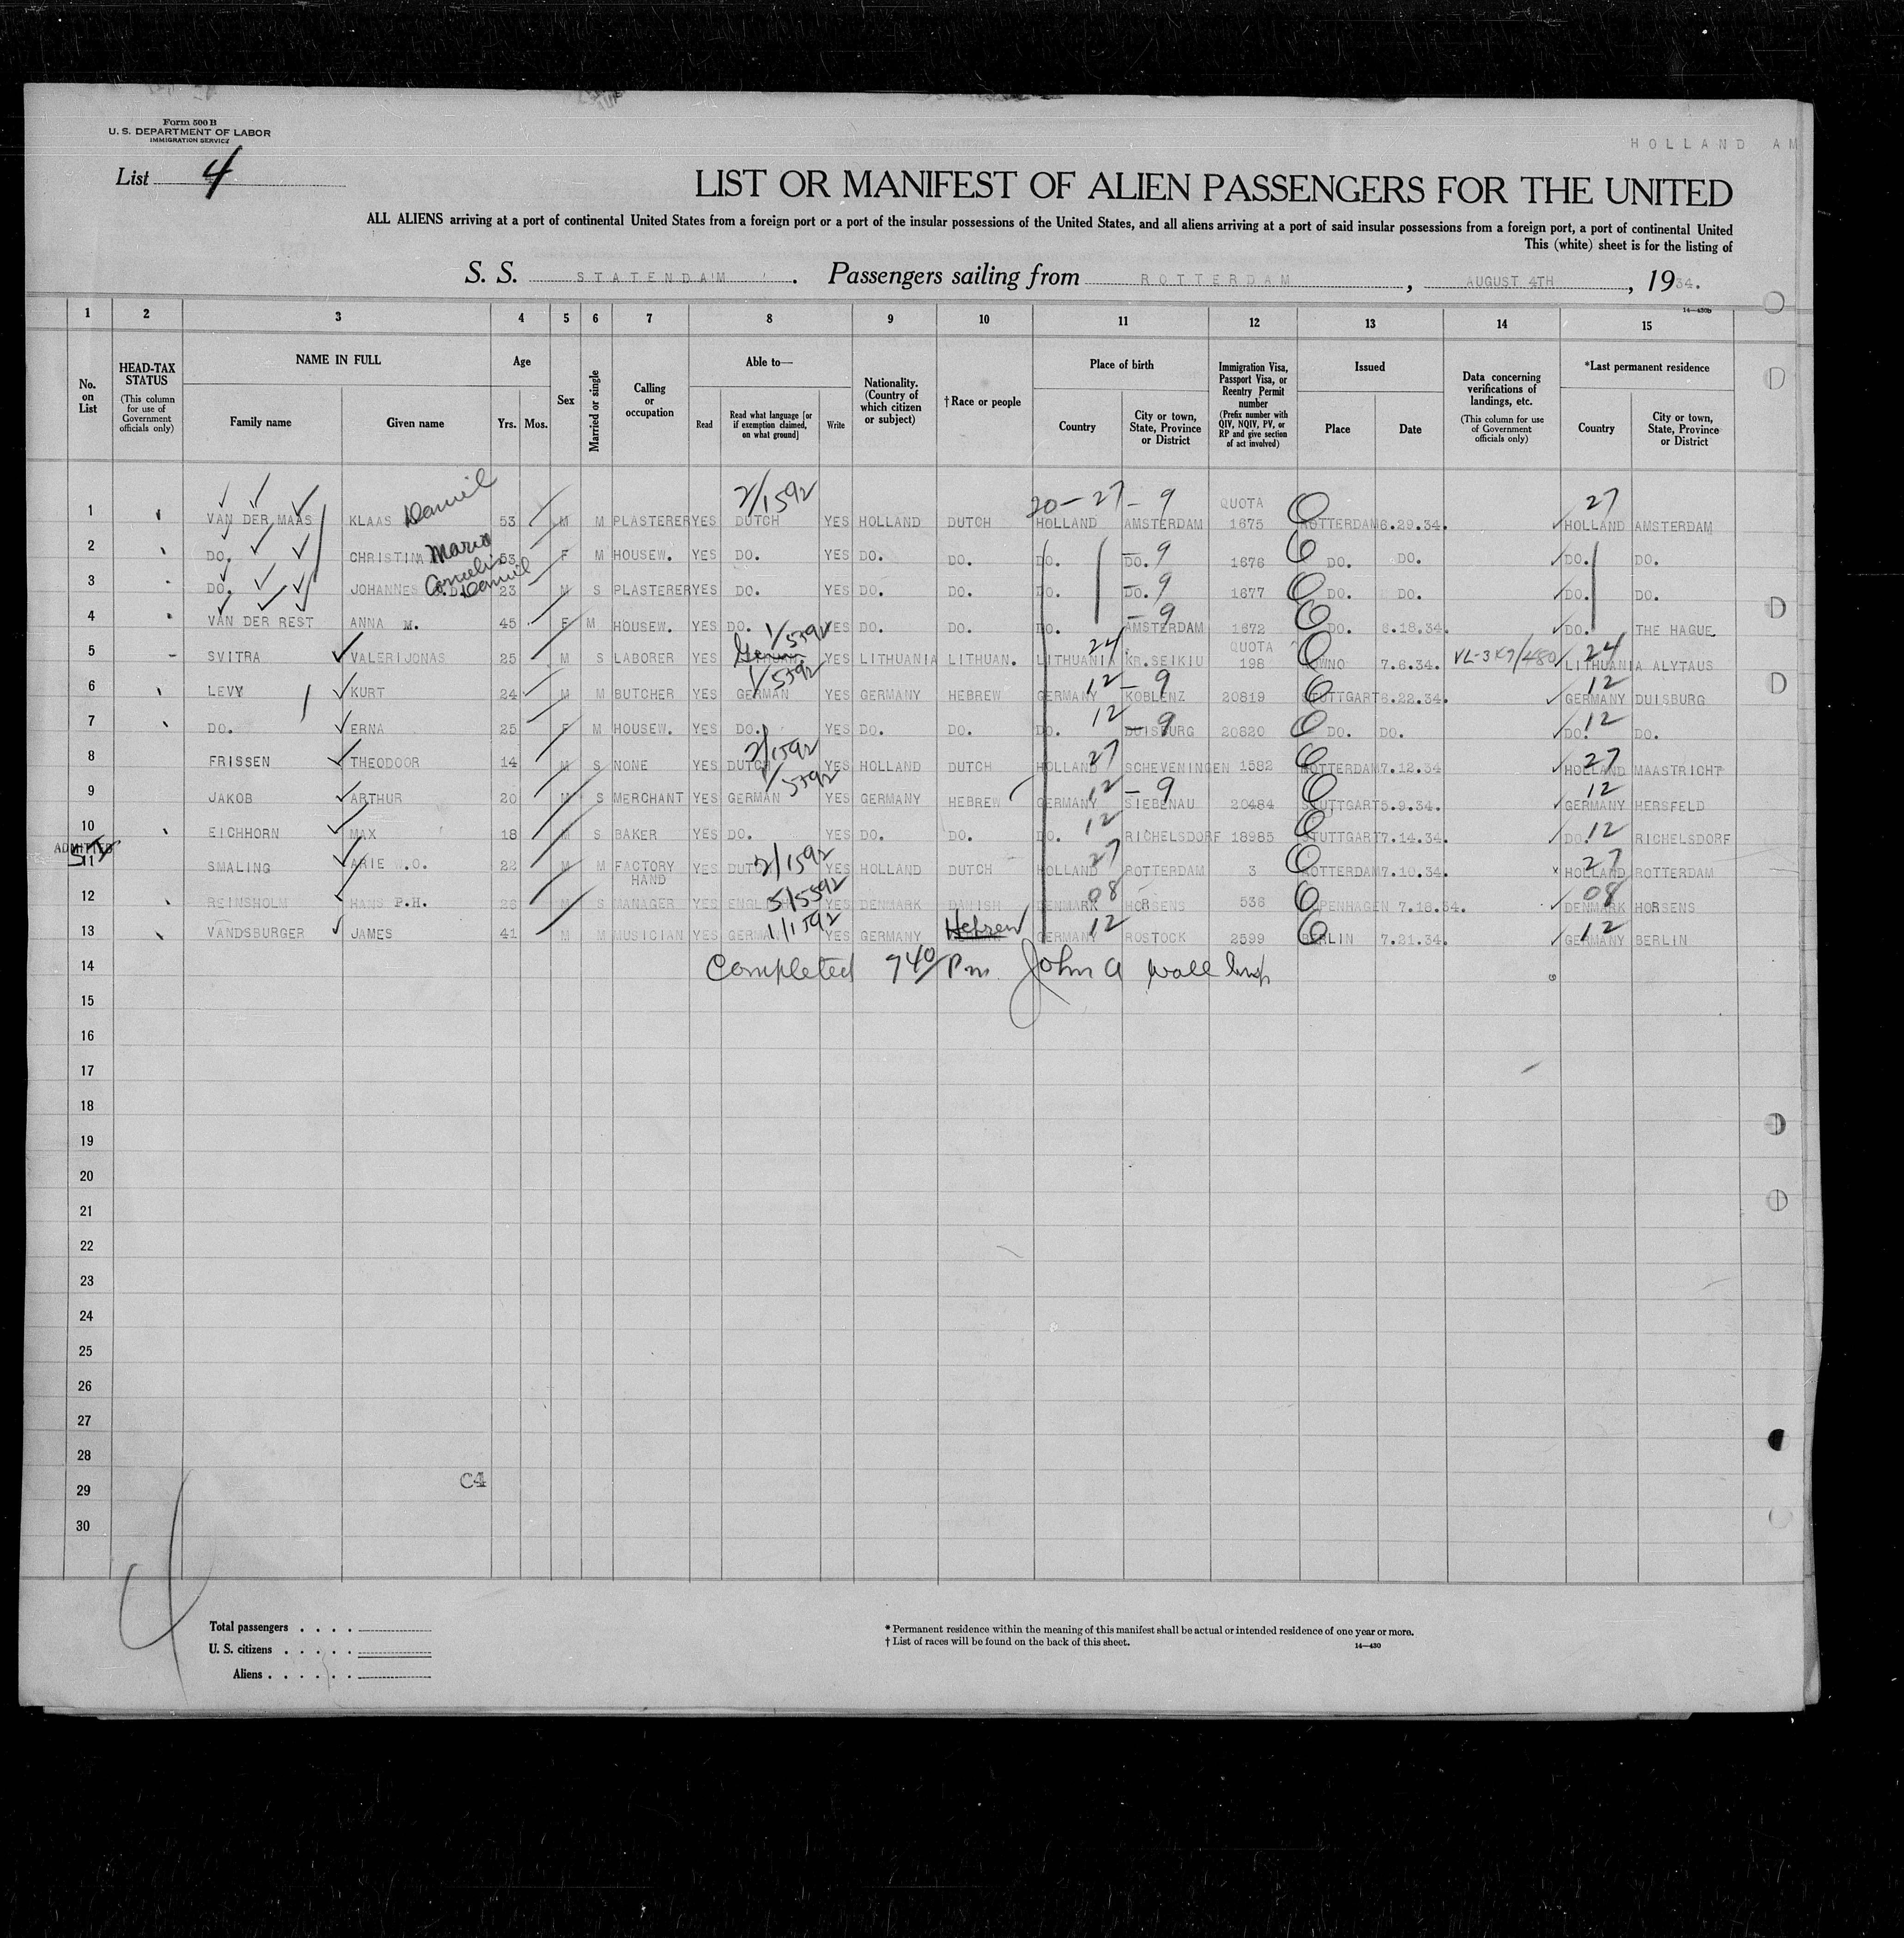 Form 500 B
U. S. DEPARTMENT OF LABOR
IMMIGRATION SERVICE
HOLLAND AM
List 4
LIST OR MANIFEST OF ALIEN PASSENGERS FOR THE UNITED
ALL ALIENS arriving at a port of continental United States from a foreign port or a port of the insular possessions of the United States, and all aliens arriving at a port of said insular possessions from a foreign port, a port of continental United
This (white) sheet is for the listing of
S. S. STATENDAM. Passengers sailing from ROTTERDAM, AUGUST 4TH, 1934.
14—430b
1 2 3 4 5 6 7 8 9 10 11 12 13 14 15
No. on List
HEAD-TAX STATUS (This column for use of Government officials only)
NAME IN FULL Family name Given name
Age Yrs. Mos.
Sex
Married or single
Calling or occupation
Able to— Read Read what language [or if exemption claimed, on what ground] Write
Nationality. (Country of which citizen or subject)
†Race or people
Place of birth Country City or town, State, Province or District
Immigration Visa, Passport Visa, or Reentry Permit number (Prefix number with QIV, NQIV, PV, or RP and give section of act involved)
Issued Place Date
Data concerning verifications of landings, etc. (This column for use of Government officials only)
*Last permanent residence Country City or town, State, Province or District
2/1592 20-27-9 QUOTA 27
1 VAN DER MAAS KLAAS Daniel 53 M M PLASTERER YES DUTCH YES HOLLAND DUTCH HOLLAND AMSTERDAM 1675 ROTTERDAM 6.29.34. HOLLAND AMSTERDAM
2 DO. CHRISTINA Maria 53 F M HOUSEW. YES DO. YES DO. DO. DO. DO. 9 1676 DO. DO. DO. DO.
3 DO. JOHANNES Cornelis Daniel 23 M S PLASTERER YES DO. YES DO. DO. DO. DO. 9 1677 DO. DO. DO. DO.
4 VAN DER REST ANNA M. 45 F M HOUSEW. YES DO. YES DO. DO. DO. AMSTERDAM 9 1672 DO. 6.18.34. DO. THE HAGUE
5 SVITRA VALERIJONAS 25 M S LABORER YES German 1/5592 YES LITHUANIA LITHUAN. LITHUANIA 24 KR.SEIKIU QUOTA 198 KOWNO 7.6.34. LITHUANIA 24 ALYTAUS
6 LEVY KURT 24 M M BUTCHER YES GERMAN 1/5592 YES GERMANY HEBREW GERMANY 12-9 KOBLENZ 20819 STUTTGART 6.22.34. GERMANY 12 DUISBURG
7 DO. ERNA 25 F M HOUSEW. YES DO. YES DO. DO. DO. 12-9 DUISBURG 20820 DO. DO. DO. 12 DO.
8 FRISSEN THEODOOR 14 M S NONE YES DUTCH 2/1592 YES HOLLAND DUTCH HOLLAND 27 SCHEVENINGEN 1582 ROTTERDAM 7.12.34 HOLLAND 27 MAASTRICHT
9 JAKOB ARTHUR 20 M S MERCHANT YES GERMAN 1/5592 YES GERMANY HEBREW GERMANY 12-9 SIEBENAU 20484 STUTTGART 5.9.34. GERMANY 12 HERSFELD
10 EICHHORN MAX 18 M S BAKER YES DO. YES DO. DO. DO. 12 RICHELSDORF 18985 STUTTGART 7.14.34. DO. 12 RICHELSDORF
ADMITTED
11 SMALING ARIE W.O. 22 M M FACTORY HAND YES DUTCH 2/1592 YES HOLLAND DUTCH HOLLAND 27 ROTTERDAM 3 ROTTERDAM 7.10.34. HOLLAND 27 ROTTERDAM
12 REINSHOLM HANS P.H. 26 M S MANAGER YES ENGLISH 5/5592 YES DENMARK DANISH DENMARK 08 HORSENS 536 COPENHAGEN 7.18.34. DENMARK 08 HORSENS
13 VANDSBURGER JAMES 41 M M MUSICIAN YES GERMAN 1/1592 YES GERMANY Hebrew GERMANY 12 ROSTOCK 2599 BERLIN 7.21.34. GERMANY 12 BERLIN
14 Completed 7 40/Pm John A Wall Insp
15
16
17
18
19
20
21
22
23
24
25
26
27
28
29 C4
30
Total passengers . . . .
U. S. citizens . . . . .
Aliens . . . . . .
* Permanent residence within the meaning of this manifest shall be actual or intended residence of one year or more.
† List of races will be found on the back of this sheet.
14—430